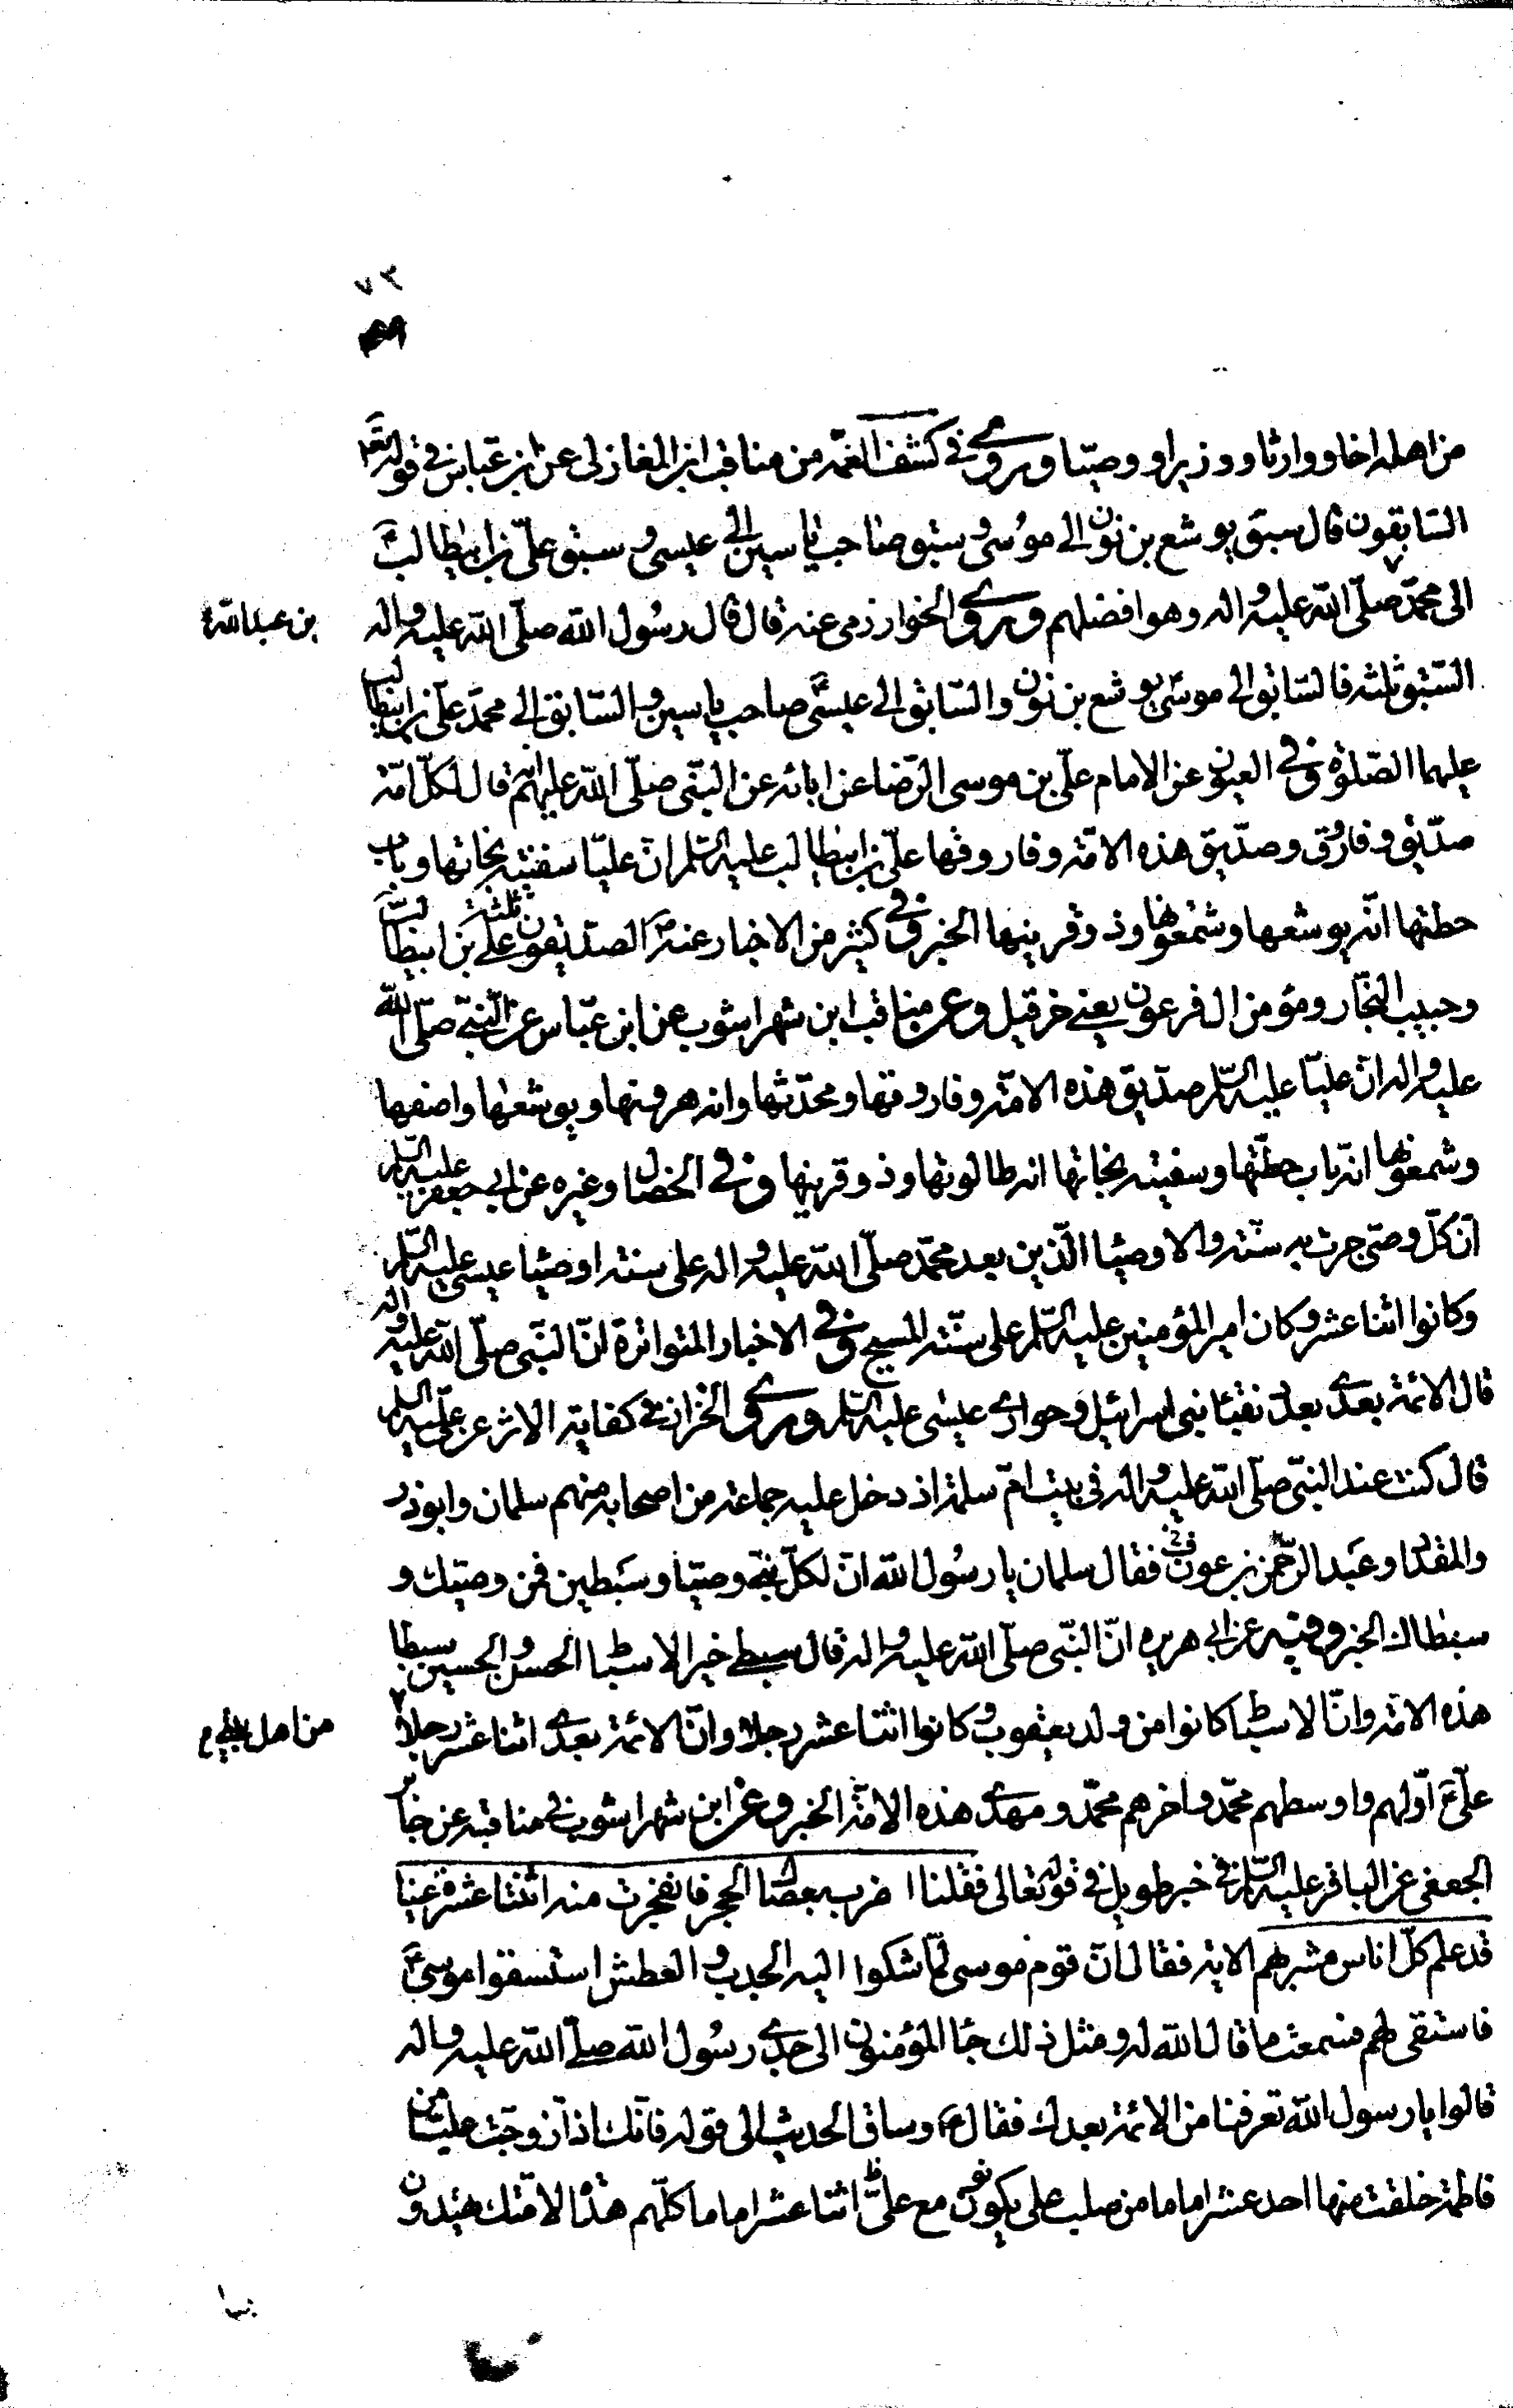 ٧٢
من اهله اخا ووارثا ووزيرا ووصيّا وروى في كشف الغمّة من مناقب ابن المغازلى عن ابن عبّاس في قوله تعم
السّابقون قال سبق يوشع بن نون الى موسى وسبق صاحب ياسين الى عيسى وسبق علىّ بن ابيطالب ع
الى محمّد صلّى الله عليه واله وهو افضلهم وروى الخوارزمى عنه قال قال رسول الله صلّى الله عليه واله
بن عبد الله
السّبق ثلثة فالسّابق الى موسى يوشع بن نون والسّابق الى عيسى صاحب ياسين والسّابق الى محمّد علىّ بن ابيطالب
عليهما الصّلوة وفي العيون عن الامام علىّ بن موسى الرّضا عن ابائه عن النبّى صلّى الله عليهم انه قال لكلّ امّة
صدّيق وفاروق وصدّيق هذه الامّة وفاروقها علىّ بن ابيطالب عليه السّلم انّ عليّا سفينة نجاتها وباب
حطتها انّه يوشعها وشمعونها وذو قرنيها الخبر وفي كثير من الاخبار عنه ص الصدّيقون ثلثة علىّ بن ابيطالب
وحبيب النجّار ومؤمن ال فرعون يعني خرقيل وعن مناقب ابن شهراشوب عن ابن عبّاس عن النبّى صلّى الله
عليه واله انّ عليّا عليه السّلم صدّيق هذه الامّة وفاروقها ومحدّثها وانه هرونها ويوشعها واصفها
وشمعونها انّه باب حطّتها وسفينة نجاتها انه طالوتها وذو قرنيها وفي الخصال وغيره عن ابى جعفر عليه السّلم
انّ كلّ وصىّ جرت به سنّة والاوصيا الّذين بعد محمّد صلّى الله عليه واله على سنة اوصيا عيسى عليه السّلم
وكانوا اثنا عشر وكان امير المؤمنين عليه السّلم على سنّة المسيح وفي الاخبار المتواترة انّ النبّى صلّى الله عليه واله
قال الائمّة بعدى بعدد نقبا بنى اسرائيل وحوارى عيسى عليه السّلم وروى الخزاز في كفاية الاثر عن علىّ عليه السّلم
قال كنت عند النبّى صلّى الله عليه واله في بيت امّ سلمة اذ دخل عليه جماعة من اصحابه منهم سلمان وابوذر
والمقداد وعبد الرّحمن بن عوف فقال سلمان يا رسول الله انّ لكلّ نبىّ وصيّا وسبطين فمن وصيّك و
سبطاك الخبر وفيه عن ابى هريره انّ النبّى صلّى الله عليه واله قال سبطى خير الاسباط الحسن والحسين سبطا
هذه الامّة وانّ الاسباط كانوا من ولد يعقوب وكانوا اثنا عشر رجلا وانّ الائمّة بعدى اثنا عشر رجلا
من اهل بيتى
علىّ ع اوّلهم واوسطهم محمّد واخرهم محمّد ومهدى هذه الامّة الخبر وعن ابن شهراشوب في مناقبه عن جابر
الجعفى عن الباقر عليه السّلم في خبر طويل في قوله تعالى فقلنا اضرب بعصاك الحجر فانفجرت منه اثنتا عشرة عينا
قد علم كلّ اناس مشربهم الاية فقال انّ قوم موسى لمّا شكوا اليه الجدب والعطش استسقوا موسى ع
فاستقى لهم فسمعت ما قال الله له ومثل ذلك جا المؤمنون الى جدى رسول الله صلّى الله عليه واله
قالوا يا رسول الله تعرفنا من الائمّة بعدك فقال وساق الحديث الى قوله فانّك اذا زوجت عليّا من
فاطمة خلقت منها احد عشر اماما من صلب على يكونون مع علىّ اثنا عشر اماما كلّهم هداة لامّتك يهتدون
بها